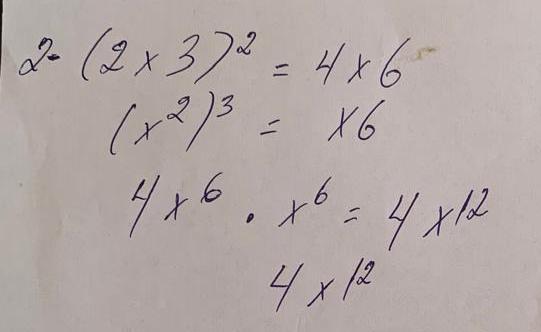 2- (2x3)² = 4x6
(x²)³ = x6
4x⁶ . x⁶ = 4x¹²
4x¹²